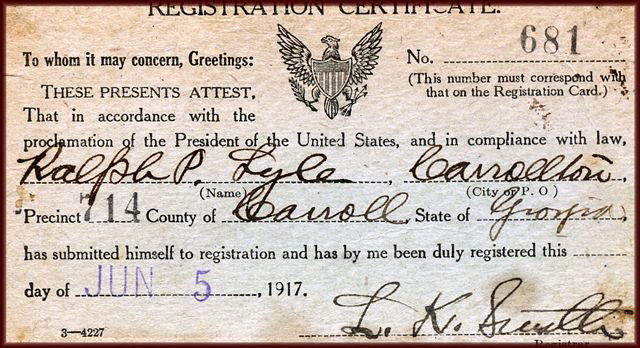 REGISTRATION CERTIFICATE.
To whom it may concern, Greetings:
No. 681
(This number must correspond with
that on the Registration Card.)
THESE PRESENTS ATTEST,
That in accordance with the
proclamation of the President of the United States, and in compliance with law,
Ralph P. Lyle, Carrollton,
(Name) (City or P. O)
Precinct 714 County of Carroll, State of Georgia,
has submitted himself to registration and has by me been duly registered this
day of JUN 5, 1917.
L. K. Smith
3—4227 Registrar